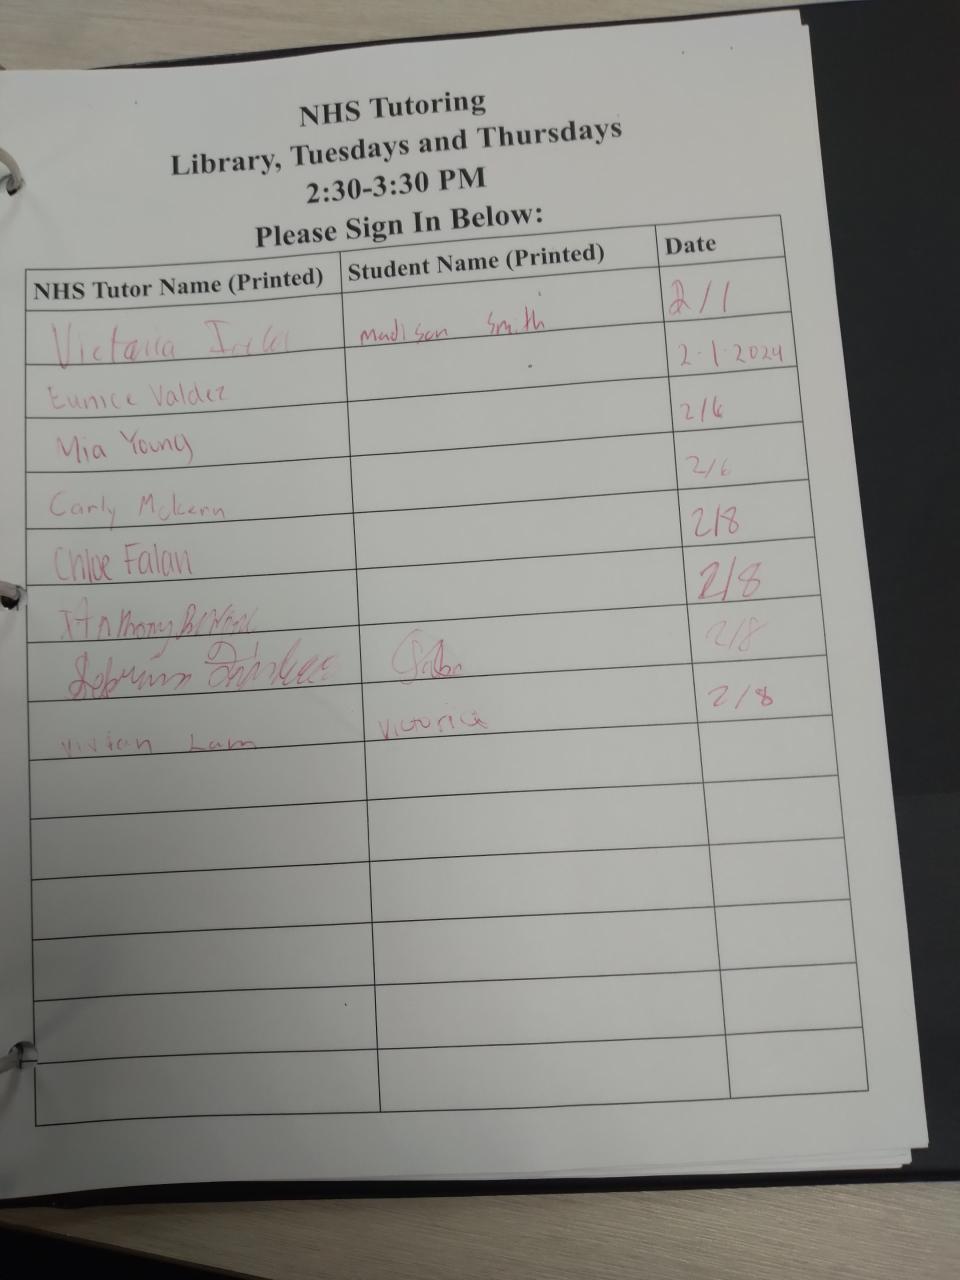 NHS Tutoring
Library, Tuesdays and Thursdays
2:30-3:30 PM
Please Sign In Below:
NHS Tutor Name (Printed) Student Name (Printed) Date
Victoria Madison Smith 2/1
Eunice Valdez 2.1.2024
Mia Young 2/6
Carly McKern 2/6
Chloe Falan 2/8
Anthony 2/8
2/8
Vivian Lam Victoria 2/8